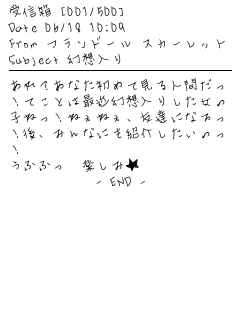 受信箱 [001/500]
Date 06/18 10:09
From フランドール スカーレット
Subject 幻想入り
あれ?あなた初めて見る人間だっ
!てことは最近幻想入りした女の
子ねっ!ねぇねぇ、友達になろっ
!後、みんなにも紹介したいのっ
!
うふふっ 楽しみ★
- END -